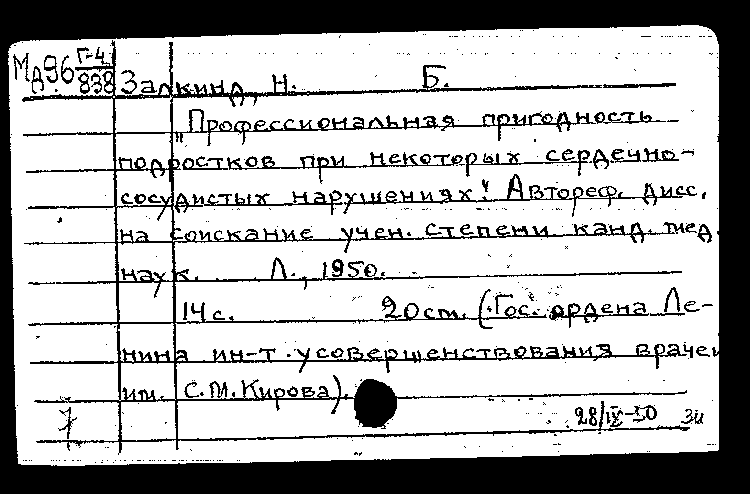 Мд96 Г-4/838 Залкинд, Н. Б.
„Профессиональная пригодность
подростков при некоторых сердечно-
сосудистых нарушениях". Автореф. дисс.
на соискание учен. степени канд. мед.
наук. Л., 1950.
14 с. 20 см. (Гос. ордена Ле-
нина ин-т усовершенствования врачей
им. С.М.Кирова).
28/IX-50 Зи
7